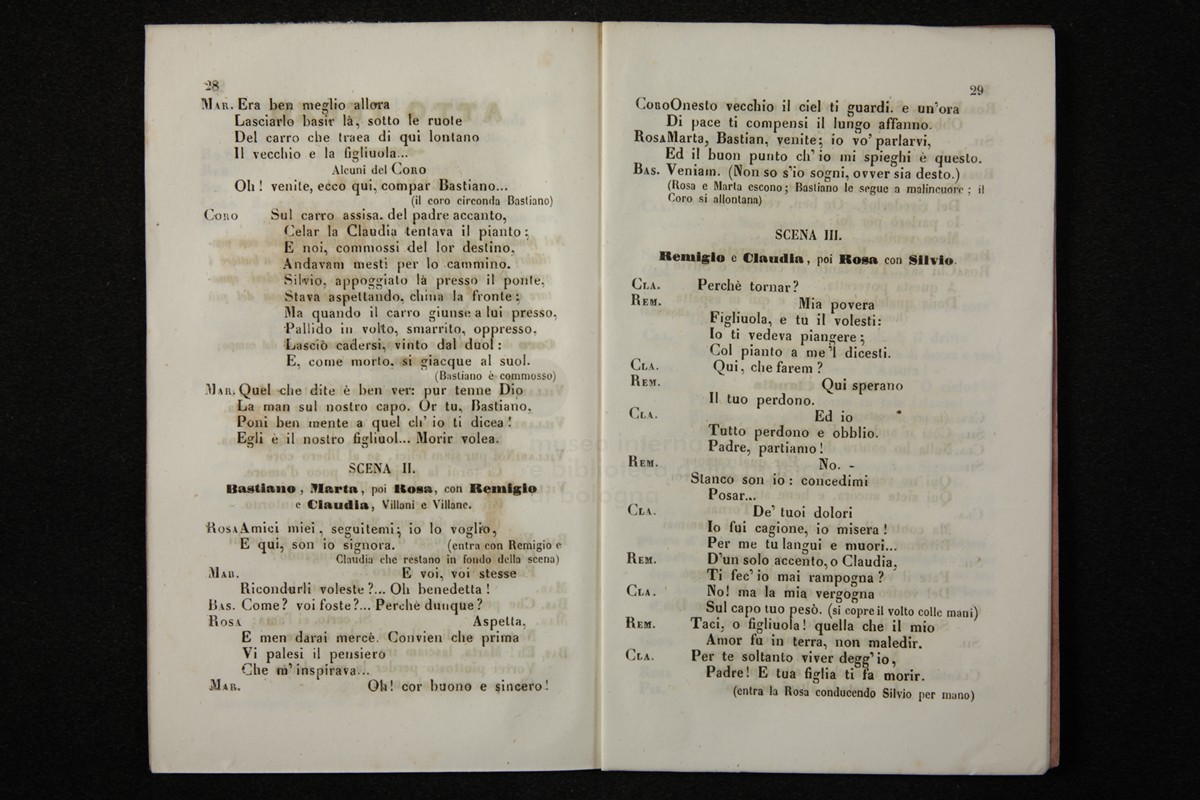 28
MAR. Era ben meglio allora
Lasciarlo basir là, sotto le ruote
Del carro che traea di qui lontano
Il vecchio e la figliuola...
Alcuni del CORO
Oh! venite, ecco qui, compar Bastiano...
(il coro circonda Bastiano)
CORO Sul carro assisa. del padre accanto,
Celar la Claudia tentava il pianto;
E noi, commossi del lor destino,
Andavam mesti per lo cammino.
Silvio, appoggiato là presso il ponte,
Stava aspettando, china la fronte;
Ma quando il carro giunse a lui presso,
Pallido in volto, smarrito, oppresso,
Lasciò cadersi, vinto dal duol:
E, come morto, si giacque al suol.
(Bastiano è commosso)
MAR. Quel che dite è ben ver: pur tenne Dio
La man sul nostro capo. Or tu, Bastiano,
Poni ben mente a quel ch' io ti dicea!
Egli è il nostro figliuol... Morir volea.
SCENA II.
Bastiano, Marta, poi Rosa, con Remigio
e Claudia, Villani e Villane.
ROSA Amici miei, seguitemi; io lo voglio,
E qui, son io signora. (entra con Remigio e
Claudia che restano in fondo della scena)
MAR. E voi, voi stesse
Ricondurli voleste?... Oh benedetta!
BAS. Come? voi foste?... Perchè dunque?
ROSA Aspetta,
E men darai mercè. Convien che prima
Vi palesi il pensiero
Che m' inspirava...
MAR. Oh! cor buono e sincero!
29
CORO Onesto vecchio il ciel ti guardi. e un'ora
Di pace ti compensi il lungo affanno.
ROSA Marta, Bastian, venite; io vo' parlarvi,
Ed il buon punto ch' io mi spieghi è questo.
BAS. Veniam. (Non so s'io sogni, ovver sia desto.)
(Rosa e Marta escono; Bastiano le segue a malincuore; il
Coro si allontana)
SCENA III.
Remigio e Claudia, poi Rosa con Silvio.
CLA. Perchè tornar?
REM. Mia povera
Figliuola, e tu il volesti:
Io ti vedeva piangere;
Col pianto a me 'l dicesti.
CLA. Qui, che farem?
REM. Qui sperano
Il tuo perdono.
CLA. Ed io
Tutto perdono e obblio.
Padre, partiamo!
REM. No. -
Stanco son io: concedimi
Posar...
CLA. De' tuoi dolori
Io fui cagione, io misera!
Per me tu langui e muori...
REM. D'un solo accento, o Claudia,
Ti fec' io mai rampogna?
CLA. No! ma la mia vergogna
Sul capo tuo pesò. (si copre il volto colle mani)
REM. Taci, o figliuola! quella che il mio
Amor fu in terra, non maledir.
CLA. Per te soltanto viver degg' io,
Padre! E tua figlia ti fa morir.
(entra la Rosa conducendo Silvio per mano)